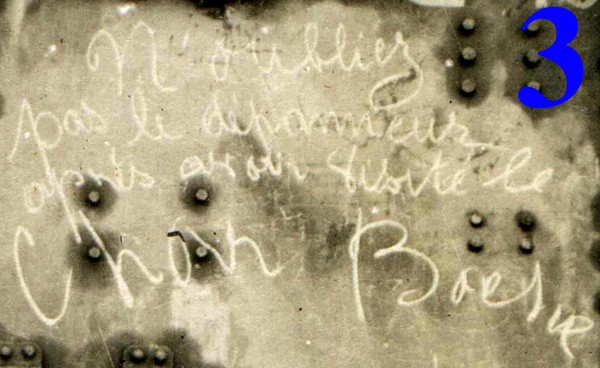 3
N'oubliez
pas le dépanneur
après avoir visité le
Char